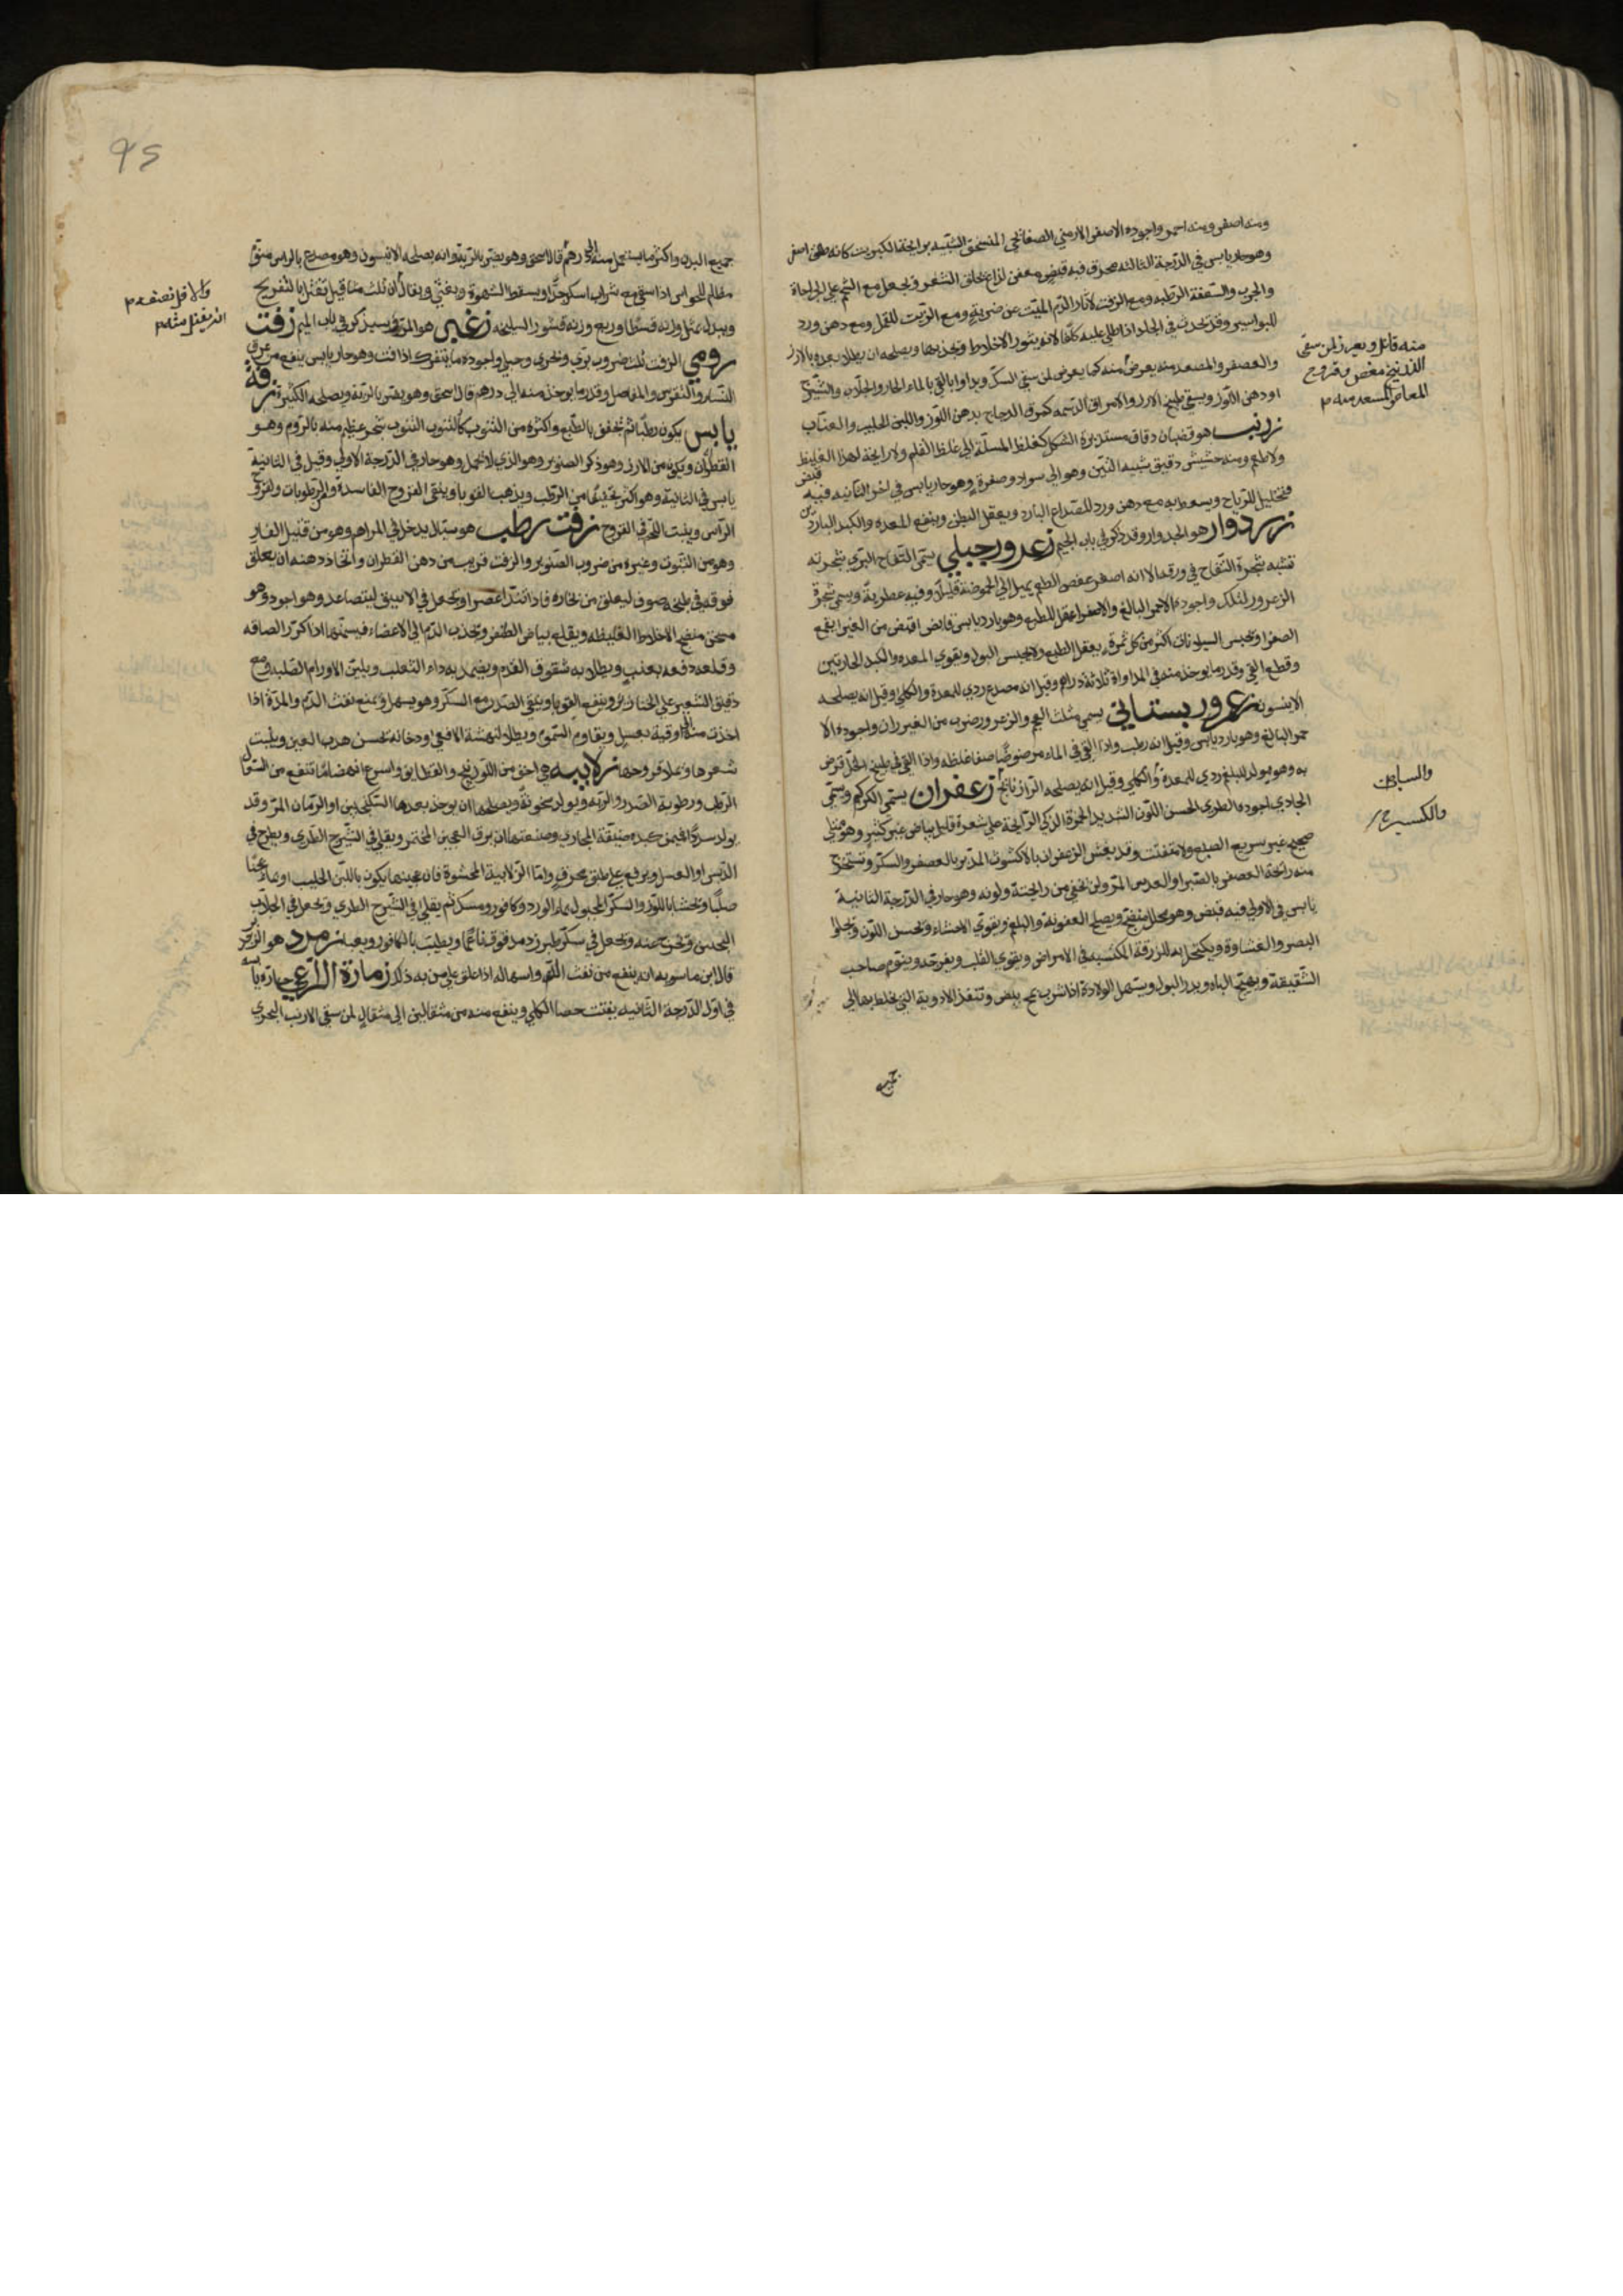 ومنه اصفر ومنه احمر واجوده الاصفر الارمني الصفائحي المنسحق الشبيه برائحة الكبريت كانه طلق اصفر
وهو حار يابس في الدرجة الثالثة محرق فيه قبض معفن لذاع يحلق الشعر ويجعل مع الشحم على الجراحات
والجرب والسعفة الرطبه ومع الزفت لآثار الدم الميت عن ضربة ومع الزيت للقمل ومع دهن ورد
للبواسير وقد تحدث في الجلد اذا طلي عليه كلفا لانه يثور الاخلاط ويجذبها ويصلحه ان يطلا بعده بالارز
والعصفر والمصعد منه يعرض منه كما يعرض لمن سقي السك ويداوا بالقي بالماء الحار والجلاب والشيرج
او دهن اللوز ويسقى طبيخ الارز والامراق الدسمه كمرق الدجاج بدهن اللوز واللبن الحليب والعناب
زرنب هو قضبان دقاق مستديرة الشكل كغلظ المسلة الى غلظ القلم ولا رايحة لهذا الغليظ
ولا طعم ومنه حشيش دقيق شبيه التين وهو الى سواد وصفرة وهو حار يابس في اخر الثانيه فيه قبض
وتحليل للرياح ويسعط به مع دهن ورد للصداع البارد ويعقل البطن وينفع المعده والكبد الباردتين
زردوار هو الجدوار وقد ذكر في باب الجيم زعرور جبلي يسمى التفاح البري شجرته
تشبه شجرة التفاح في ورقه الا انه اصغر عفص الطعم يميل الى الحموضة قليلا وفيه عطرية ويسمى شجرة
الزعرور لذلك واجوده الاحمر البالغ والاصفر اعقل للطبع وهو بارد يابس قابض اقبض من الغبيرا يقمع
الصفرا ويحبس السيلانات اكثر من كل ثمرة يعقل الطبع ولا يحبس البول ويقوي المعده والكبد الحارتين
وقطع القي وقدر ما يوخذ منه في المداواة ثلاثة دراهم وقيل انه مصدع ردي للمعدة والكلى وقيل انه يصلحه
الانيسون زعرور بستاني يسمى مثلث العجم والزعرور ضرب من الغبيران واجوده الا
حمر البالغ وهو بارد يابس وقيل انه رطب واذا القي في الماء مرضوضا صفا غلظه واذا القي في طبيخ الخل قرض
به وهو مولد للبلغم ردي للمعدة والكلى وقيل انه يصلحه الرازيانج زعفران يسمى الكركم ويسمى
الجادي اجوده الطري الحسن اللون الشديد الحمرة الزكي الرايحة على شعره قليل بياض غير كثير وهو ممتلي
صحيح غير سريع الصبغ ولا متفتت وقد يغش الزعفران بالاكشوث المدبر بالعصفر والسكر وتستخرج
منه رائحة العصفر بالصبر او العدس المر ولن تخفي من رايحته ولونه وهو حار في الدرجة الثانية
يابس في الاولى فيه قبض وهو محلل منضج ويصلح العفونة والبلغم ويقوي الاحشاء ويحسن اللون ويجلوا
البصر والغشاوة ويكتحل به للزرقة المكتسبه في الامراض ويقوي القلب ويفرحه وينوم صاحب
الشقيقة ويهيج الباه ويدر البول ويسهل الولادة اذا شرب بمح بيض وتنفذ الادوية التي يخلط بها الى
جميع
منه قاتل ويعرض لمن سقي
الزرنيخ مغص وقروح
المعا
والسابق
جميع البدن واكثر ما يستعمل منه الى درهم قال اسحق وهو يضر بالرية وانه يصلحه الانيسون وهو مصدع بالراس منوم
مظلم للحواس اذا سقي مع شراب اسكر جدا ويسقط الشهوة ويغثي ويقال ان ثلث مثاقيل تقتل بالتفريح
وبدله مثل وزنه قسط وربع وزنه قشور السليخه زغبر هو المرو وسيذكر في باب الميم زفت
رومي الزفت ثلث ضروب بري وبحري وجبلي واجوده ما يتفرك اذا فت وهو حار يابس ينفع من عرق
النساء والنقرس والمفاصل وقدر ما يوخذ منه الى درهم قال اسحق وهو يضر بالرية ويصلحه الكثيرا زفت
يابس يكون رطبا ثم يجفف بالطبع واكثره من التنوب كالتنوب التنوب شجر عظيم منه بالروم وهو
القطران ويكون من الارز وهو ذكر الصنوبر وهو الذي لا يحمل وهو حار في الدرجة الاولى وقيل في الثانية
يابس في الثانية وهو اكثر تجفيفا من الرطب ويذهب القوبا وينقى القروح الفاسدة والرطوبات وقروح
الراس وينبت اللحم في القروح زفت رطب هو سيال يدخل في المراهم وهو من قبيل القار
وهو من التنوب وغيره من ضروب الصنوبر والزفت قريب من دهن القطران واتخاذ دهنه ان يعلق
فوقه في طبخه صوف ليعلق من بخاره فاذا تندا اعصر او يجعل في الانبيق ليتصاعد وهو اجود وهو
مسخن منضج الاخلاط الغليظه ويقلع بياض الظفر ويجذب الدم الى الاعضاء فيسمنها اذا كرر الصاقه
وقلعه دفعه بعنف ويطلا به شقوق القدم ويضمد به داء الثعلب ويلين الاورام الصلبه ومع
دقيق الشعير على الخنازير وينفع القوبا وينقي الصدر مع السكر وهو يسهل ويمنع نفث الدم والمدة اذا
اخذت منه الى اوقية بعسل ويقاوم السموم ويطلا لنهشة الافعى ودخانه يحسن هدب العين وينبت
شعرها وعلا قروحها زلابيه هي اخف من اللوزينج والقطايف واسرع انهضاما تنفع من السعال
الرطب ورطوبة الصدر والرية ويولد سخونة ويصلحها ان يوخذ بعدها السكنجبين او الرمان المز وقد
يولد سددا فيمن كبده ضيقة المجاري وصنعتها ان يرق العجين المختمر ويقلى في الشيرج الطري ويطرح في
الدبس او العسل ويرفع على طبق مخرق واما الزلابية المحشوة فان عجينها يكون باللبن الحليب او ماء عجنا
صلبا وتحشا باللوز والسكر المجبول بماء الورد وكافور ومسك ثم يقلى في الشيرج الطري ويجعل في الجلاب
التخين وتخرج منه وتجعل في سكر طبرزد مدقوق ناعما ويطيب بالكافور ويعبا زمرد هو الزبرجد
قال ابن ماسويه انه ينفع من نفث الدم واسهاله اذا علق على من به ذلك زمارة الراعي حارة يابسه
في اول الدرجة الثانيه يفتت حصا الكلى وينفع منه من مثقالين الى مثقال لمن سقي الارنب البحري